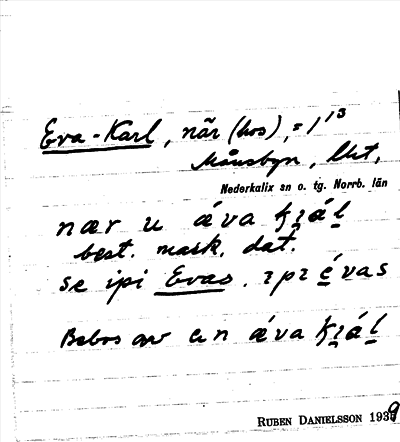 Eva-Karl, når (hos), = 1 13
Månsbyn, Ukt,
Nederkalix sn o. tg. Norrb. län
nær u áva kɩ̯áḷ
best. mask. dat.
se ipi Evas, ɩpɩ évas
Bebos av en áva kɩ̯áḷ
RUBEN DANIELSSON 1939